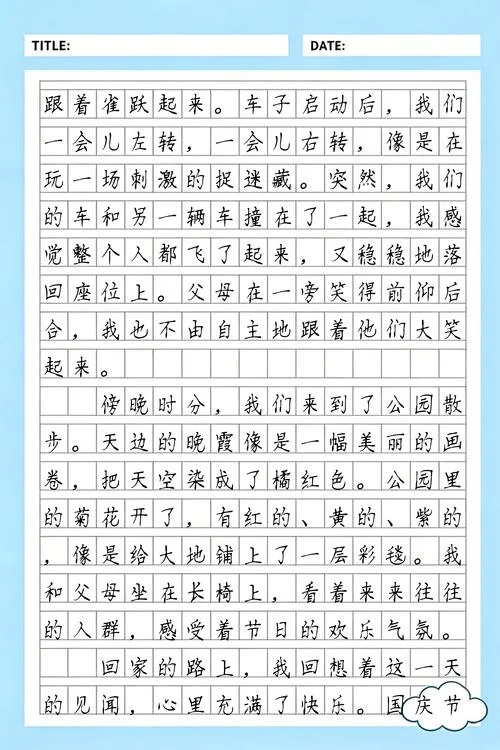 TITLE: DATE:
跟着雀跃起来。车子启动后，我们
一会儿左转，一会儿右转，像是在
玩一场刺激的捉迷藏。突然，我们
的车和另一辆车撞在了一起，我感
觉整个人都飞了起来，又稳稳地落
回座位上。父母在一旁笑得前仰后
合，我也不由自主地跟着他们大笑
起来。
傍晚时分，我们来到了公园散
步。天边的晚霞像是一幅美丽的画
卷，把天空染成了橘红色。公园里
的菊花开了，有红的、黄的、紫的
，像是给大地铺上了一层彩毯。我
和父母坐在长椅上，看着来来往往
的人群，感受着节日的欢乐气氛。
回家的路上，我回想着这一天
的见闻，心里充满了快乐。国庆节